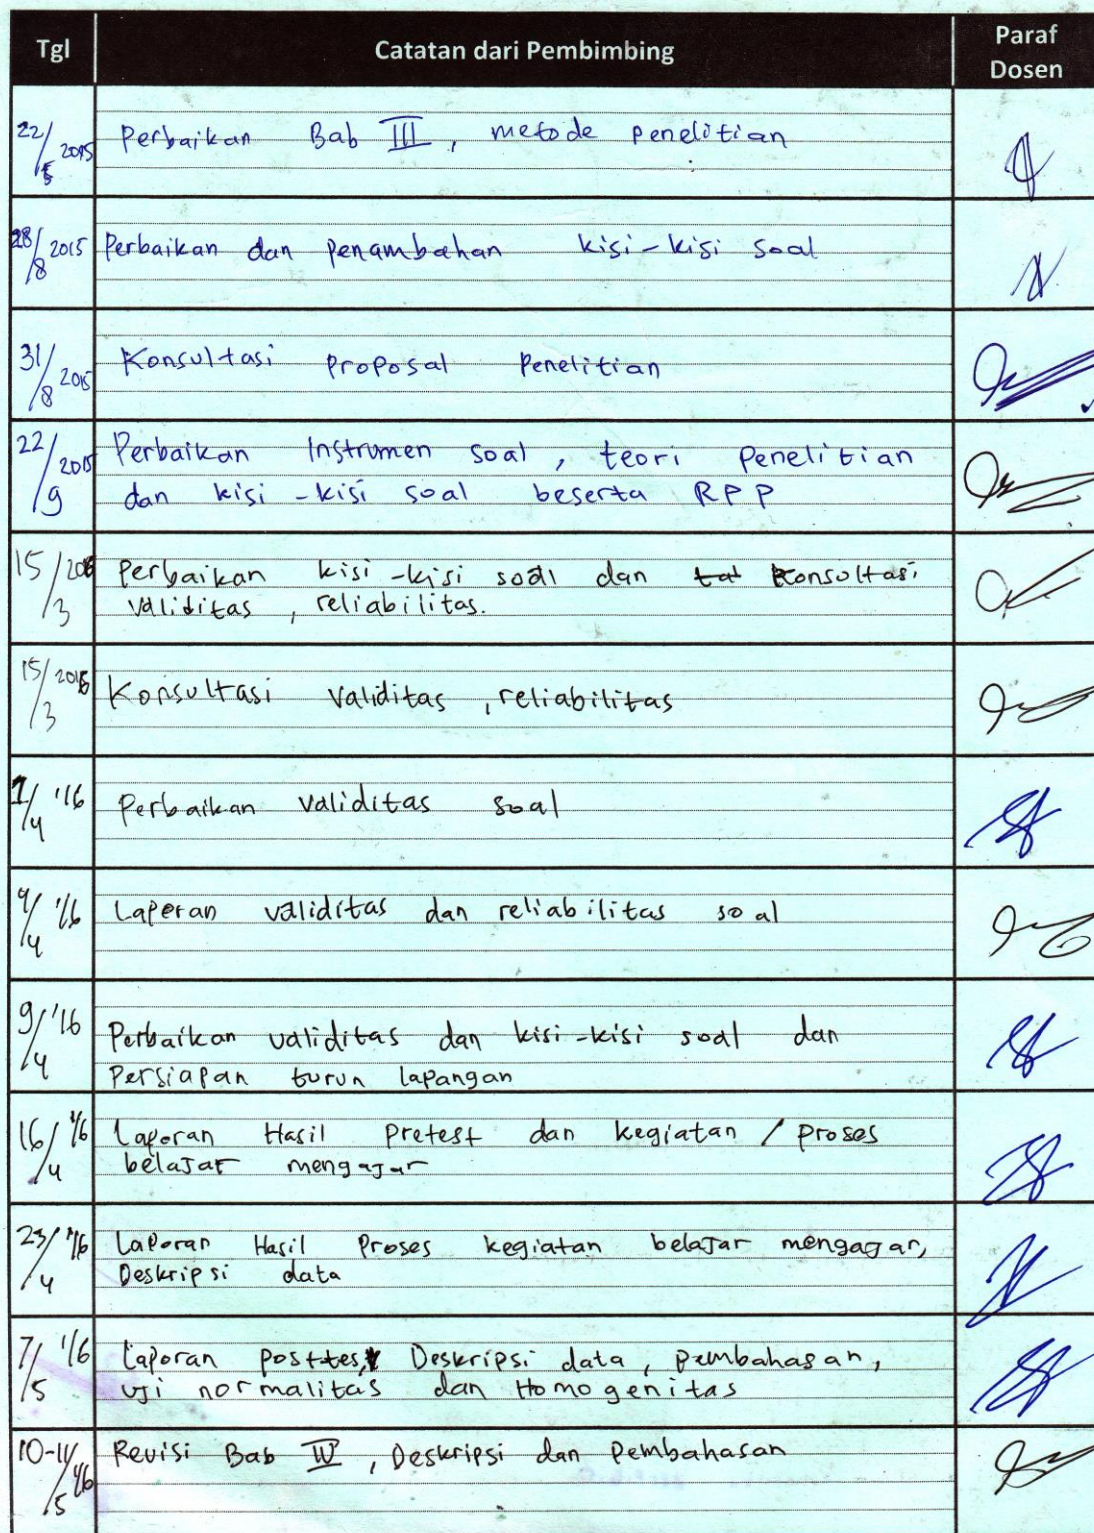 Tgl Catatan dari Pembimbing Paraf Dosen
22/5 2015 Perbaikan Bab III, metode penelitian
28/8 2015 Perbaikan dan penambahan kisi-kisi soal
31/8 2015 Konsultasi proposal penelitian
22/9 2015 Perbaikan Instrumen soal, teori penelitian
dan kisi-kisi soal beserta RPP
15/3 Perbaikan kisi-kisi soal dan konsultasi
validitas, reliabilitas.
15/3 2016 Konsultasi validitas, reliabilitas
1/4 '16 Perbaikan validitas soal
4/4 '16 Laporan validitas dan reliabilitas soal
9/4 '16 Perbaikan validitas dan kisi-kisi soal dan
Persiapan turun lapangan
16/4 '16 Laporan Hasil Pretest dan kegiatan / proses
belajar mengajar
23/4 '16 Laporan Hasil Proses kegiatan belajar mengajar,
Deskripsi data
7/5 '16 Laporan posttest, Deskripsi data, pembahasan,
uji normalitas dan Homogenitas
10-11/5 '16 Revisi Bab IV, Deskripsi dan Pembahasan